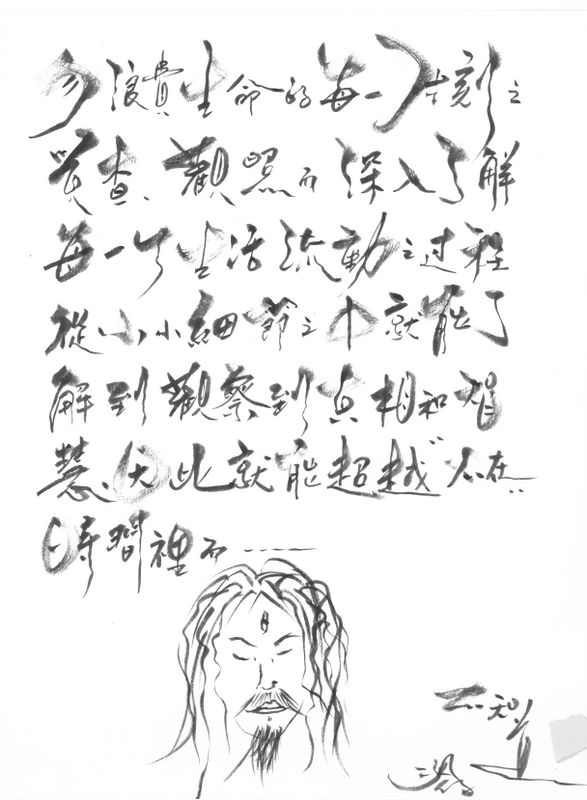 勿浪費生命的每一刻之
覺查、觀照而深入了解
每一個生活流動之過程
從小小細節之中就能了
解到觀察到真相和智
慧、因此就能超越"不在
時間裡而……
不知道